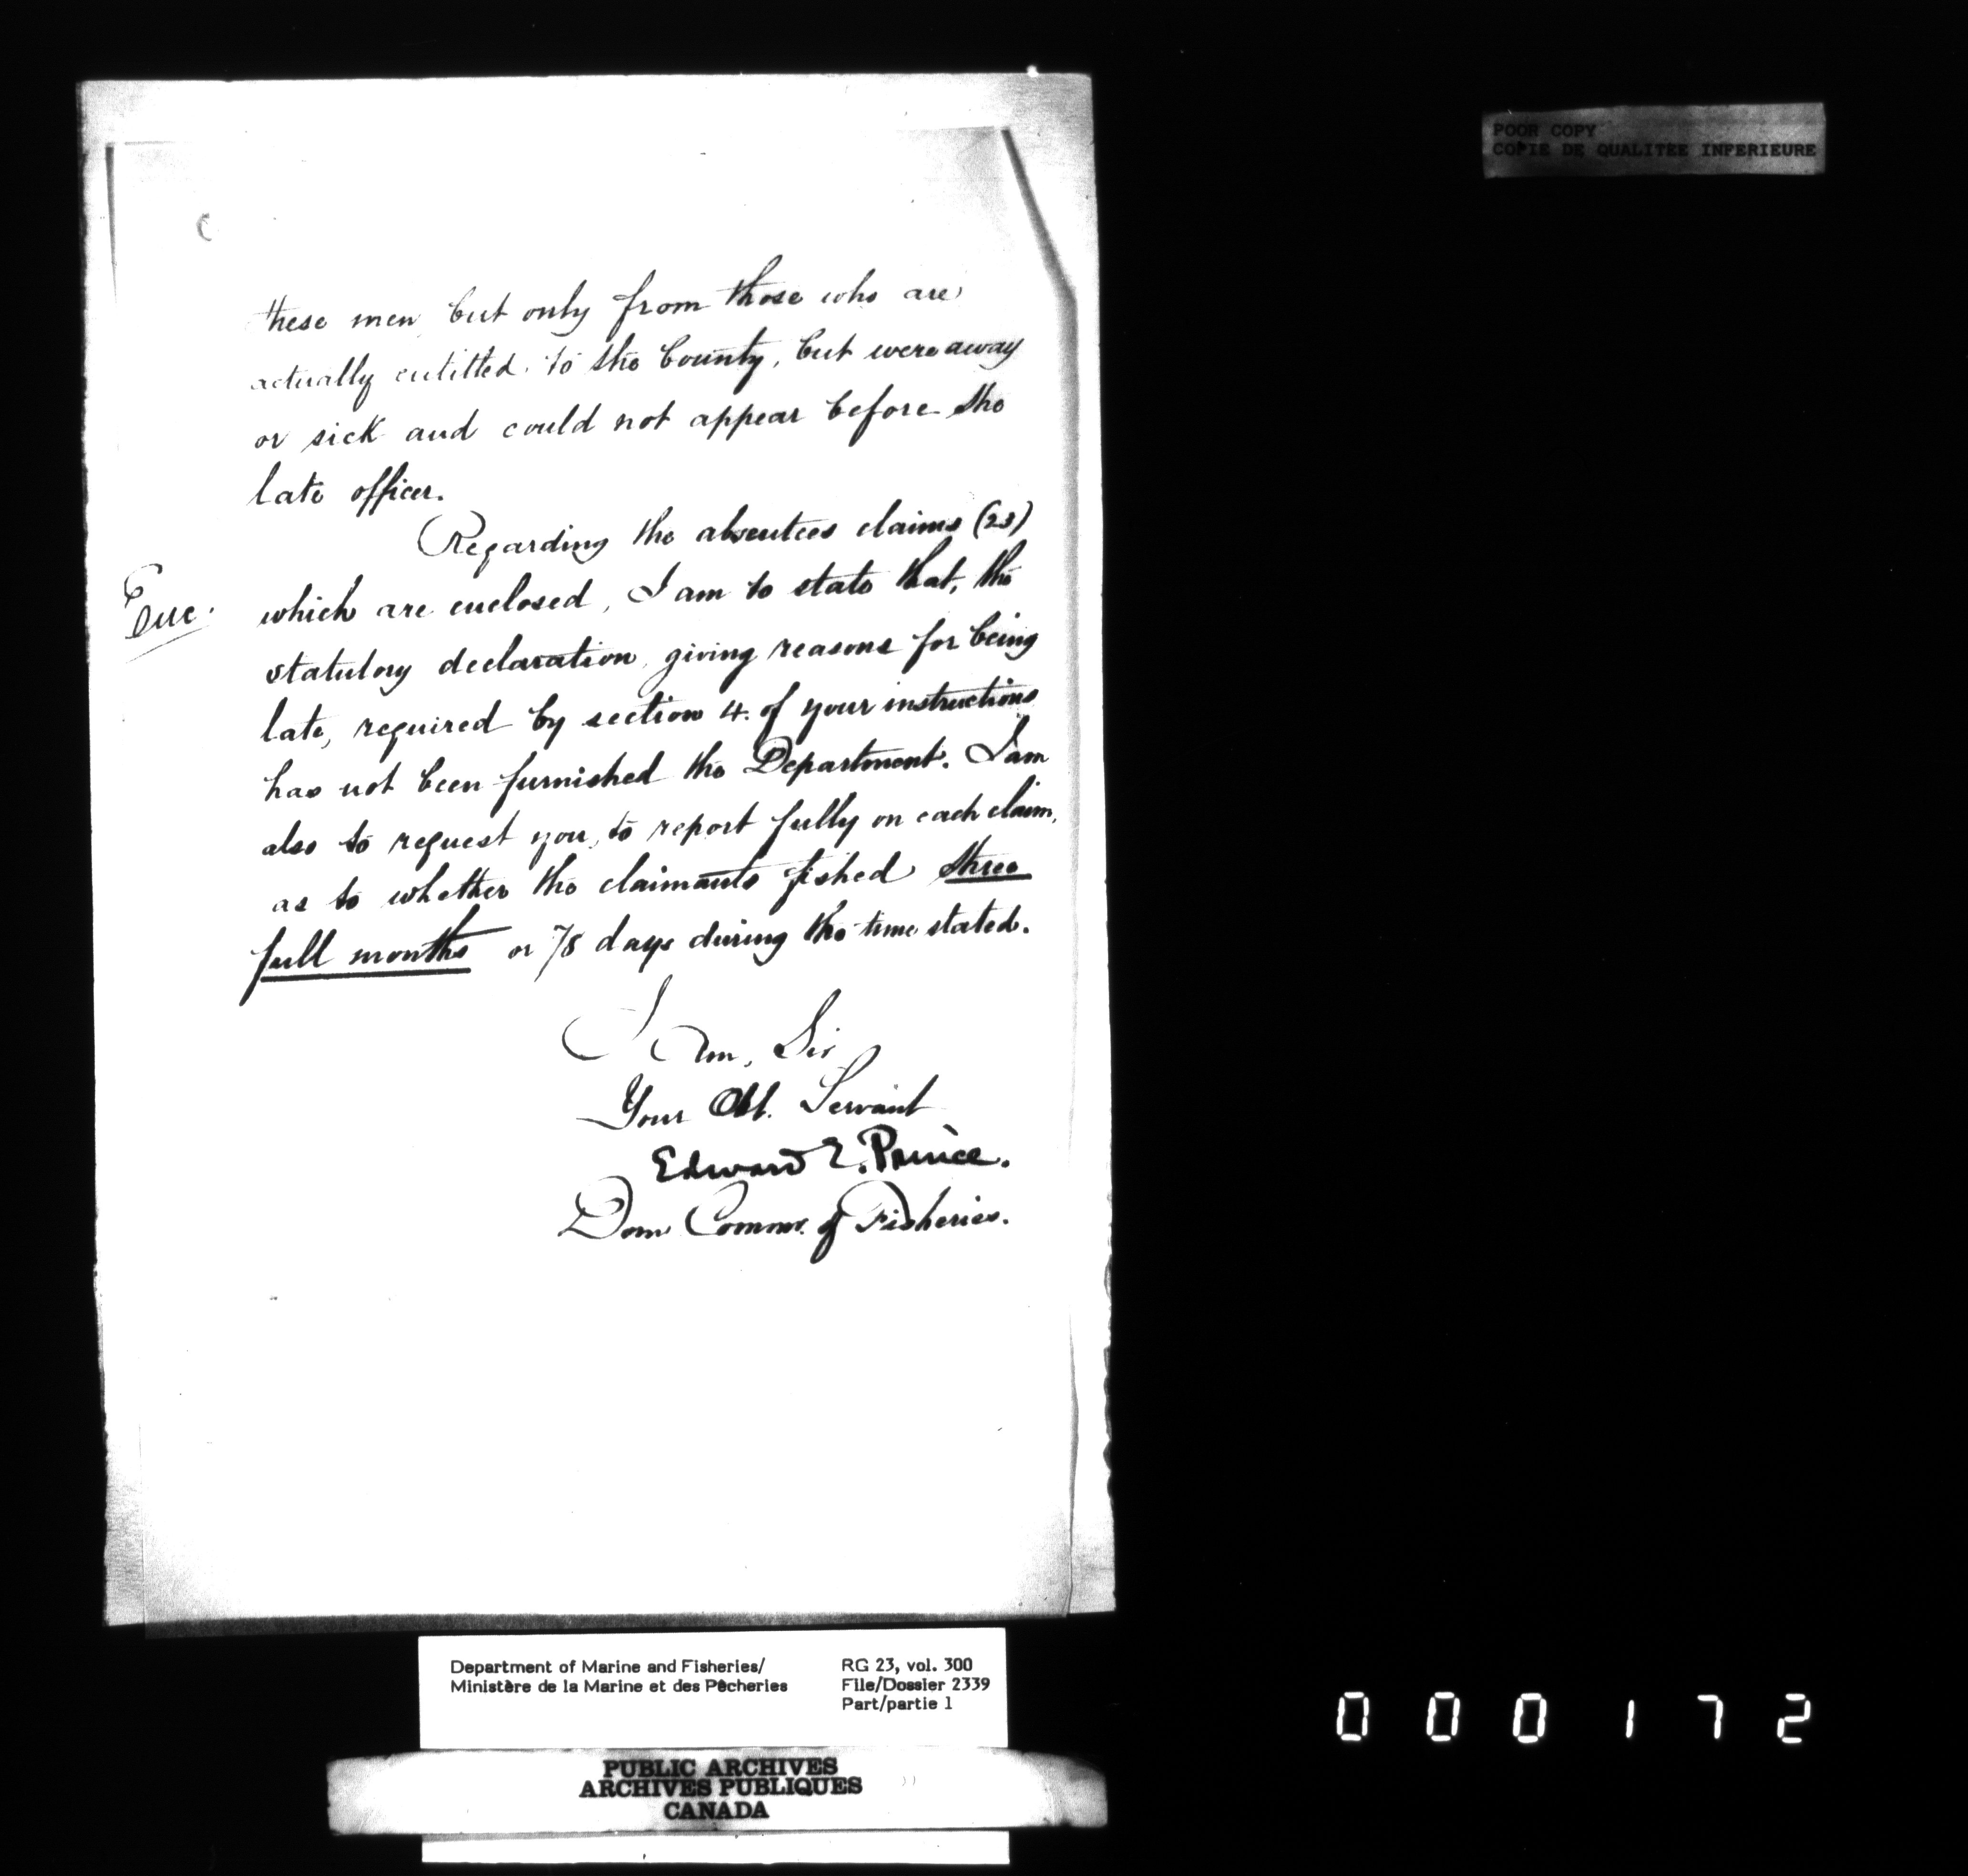 POOR COPY
COPIE DE QUALITEE INFERIEURE
these men but only from those who are
actually entitled to the bounty, but were away
or sick and could not appear before the
late officer.
Regarding the absentees claims (23)
Enc.
which are enclosed, I am to state that, the
statutory declaration, giving reasons for being
late, required by section 4. of your instructions
has not been furnished the Department. I am
also to request you, to report fully on each claim,
as to whether the claimants fished three
full months or 78 days during the time stated.
I Am, Sir
Your Obt. Servant
Edward E. Prince.
Dom Commr. of Fisheries.
Department of Marine and Fisheries/
Ministère de la Marine et des Pêcheries
RG 23, vol. 300
File/Dossier 2339
Part/partie 1
PUBLIC ARCHIVES
ARCHIVES PUBLIQUES
CANADA
000172